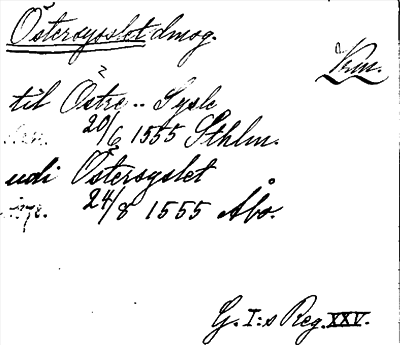 Östersysslet dmog.
Krm.
til Östre .. Sysle
20/6 1555 Sthlm.
udi Östersyslet
24/8 1555 Åbo.
G. I:s Reg. XXV.